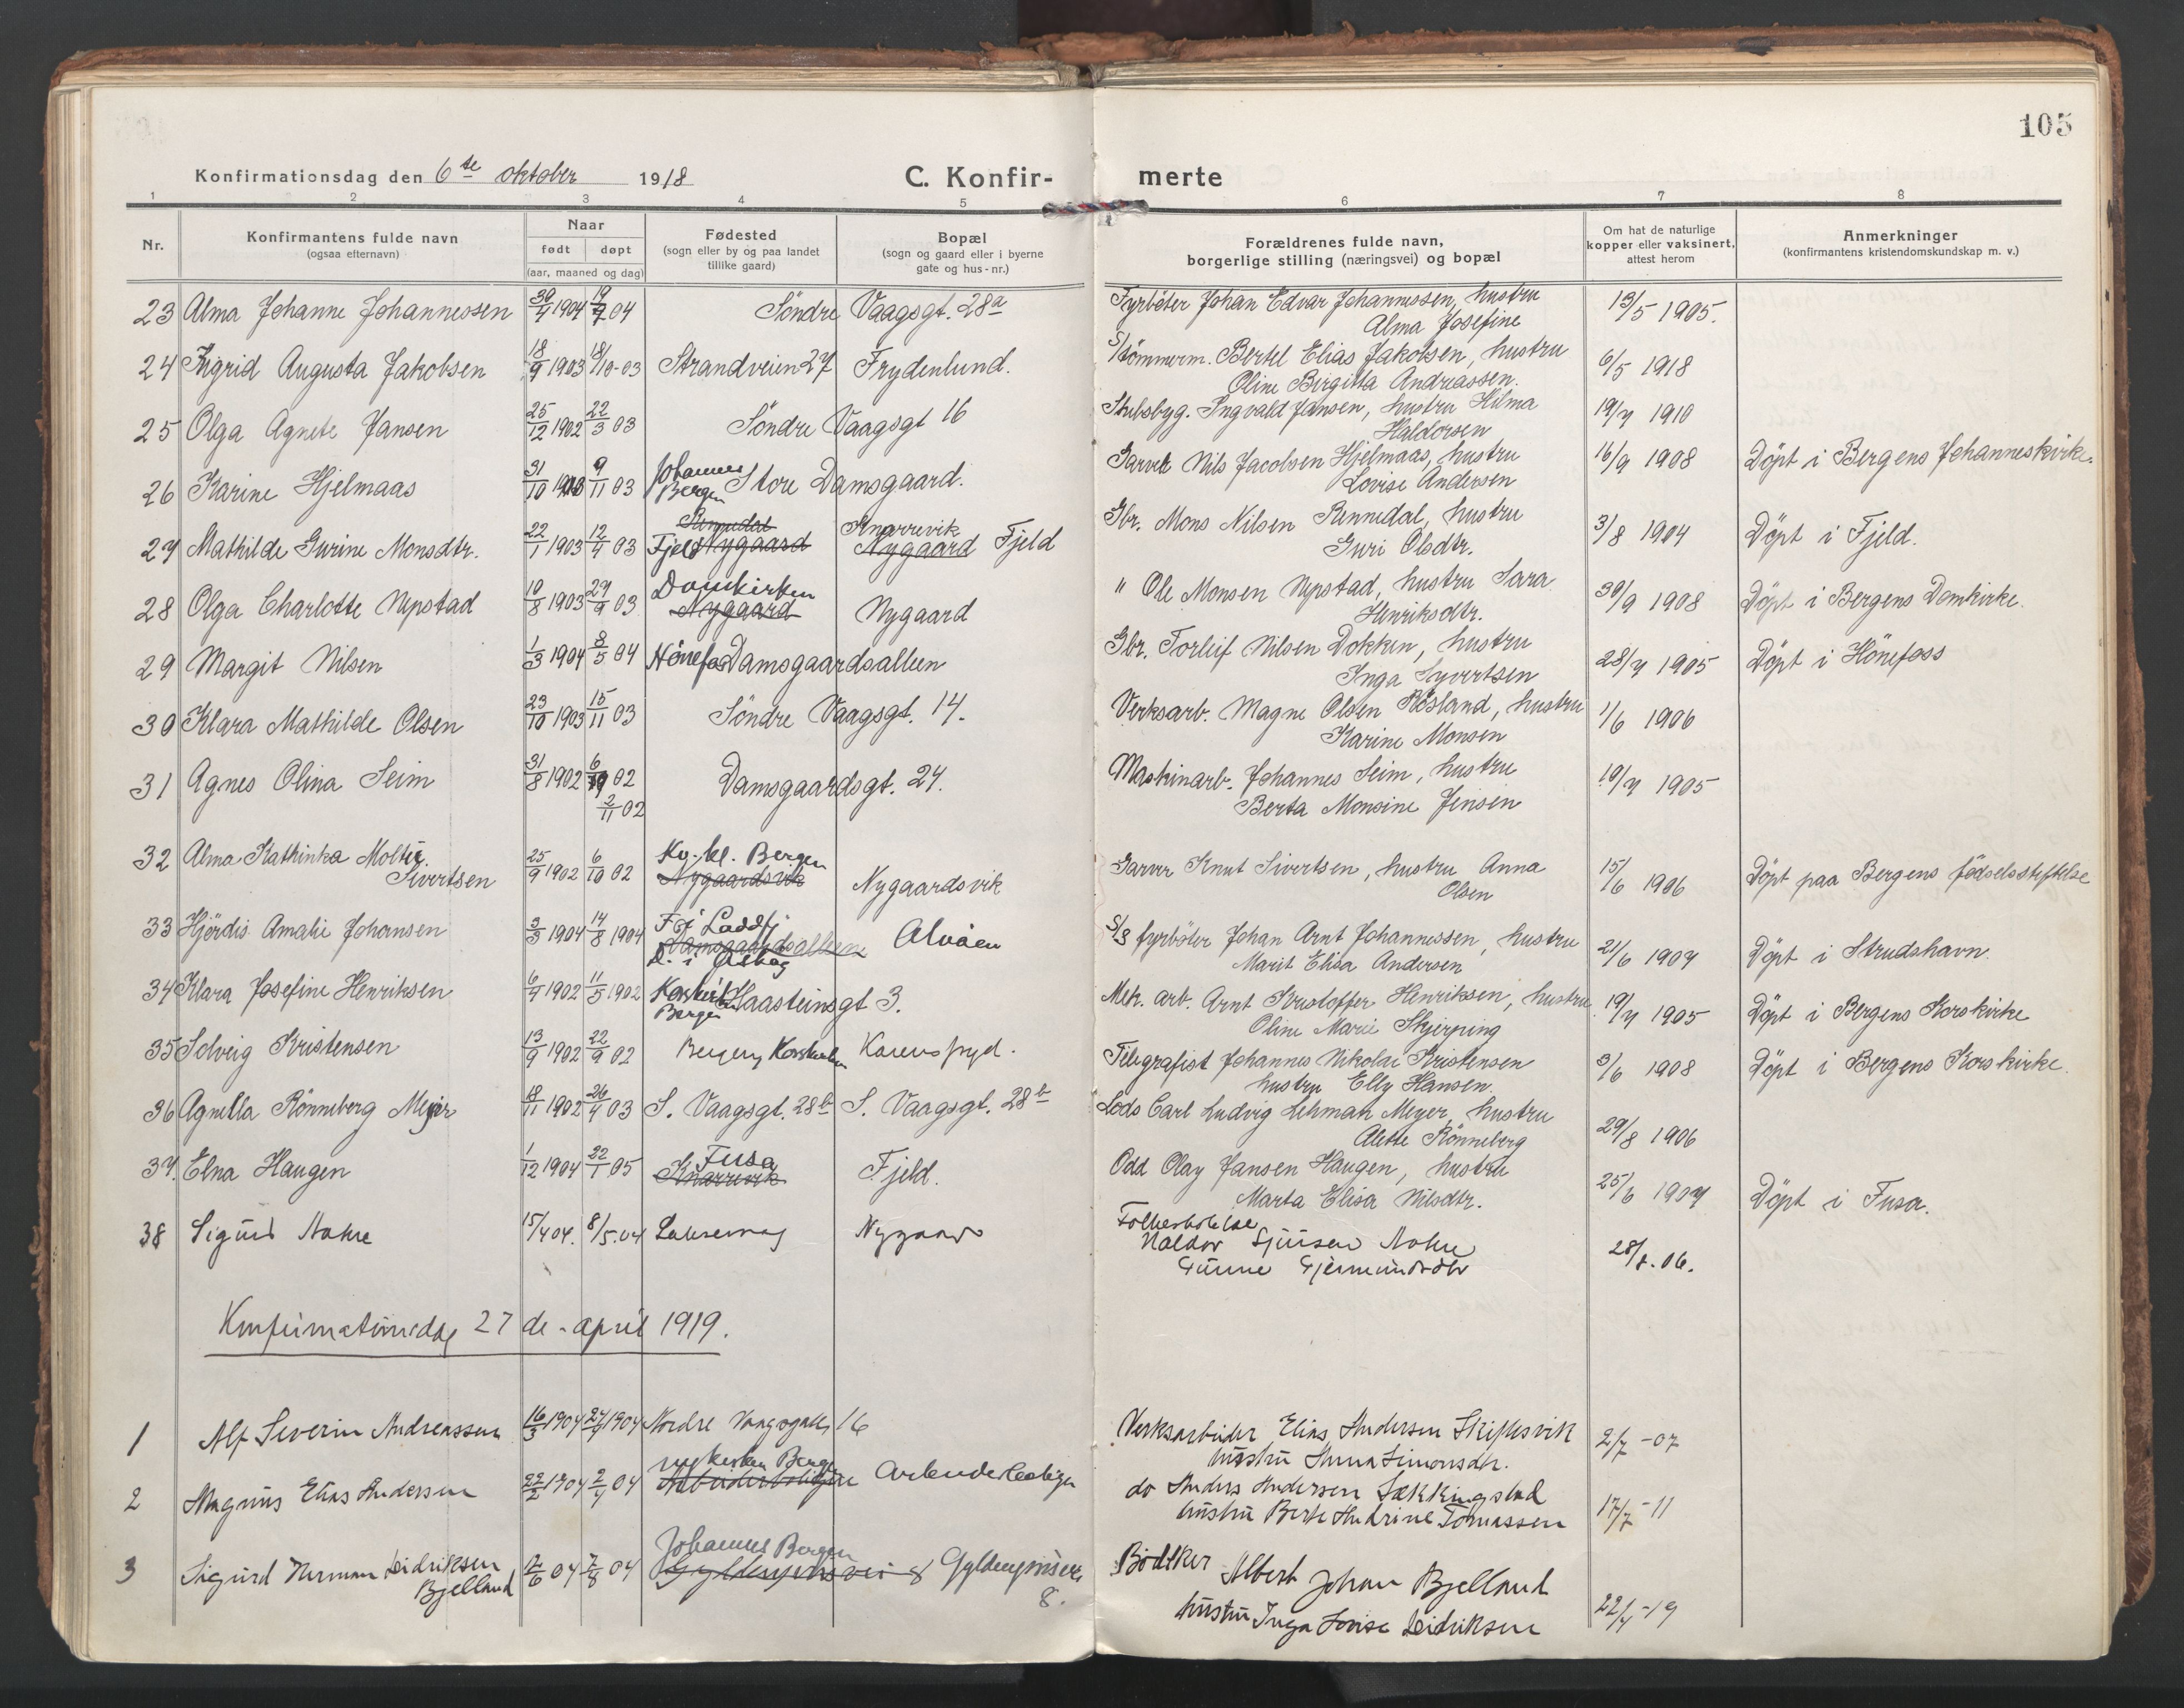 105
Konfirmationsdag den 6te oktober 1918 C. Konfir- merte
1 2 3 4 5 6 7 8
Nr. Konfirmantens fulde navn (ogsaa efternavn) Naar født døpt (aar, maaned og dag) Fødested (sogn eller by og paa landet tillike gaard) Bopæl (sogn og gaard eller i byerne gate og hus-nr.) Forældrenes fulde navn, borgerlige stilling (næringsvei) og bopæl Om hat de naturlige kopper eller vaksinert, attest herom Anmerkninger (konfirmantens kristendomskundskap m. v.)
23 Alma Johanne Johannessen 30/4 1904 04 Söndre Vaagsgt. 28a Fyrböter Johan Edvar Johannessen, hustru 13/5 1905.
Alma Josefine
24 Ingrid Augusta Jakobsen 18/9 1903 18/10-03 Strandveien 27 Frydenlund. S/tömmerm. Bertel Elias Jakobsen, hustru 6/5 1918
Oline Birgitta Andreassen.
25 Olga Agnete Jansen 25/12 1902 22/3 03 Söndre Vaagsgt 16 Skibsbyg. Ingvald Jansen, hustru Hilma 19/7 1910
Haldorsen
26 Karine Hjelmaas 31/10 1903 9/11 03 Johannes Bergen Store Damsgaard. Garver Nils Jacobsen Hjelmaas, hustru 16/9 1908 Döpt i Bergens Johanneskirke.
Lovise Andersen
27 Mathilde Gurine Monsdtr. 22/1 1903 12/4 03 Fjeld Rennedal Nygaard Knarrevik Nygaard Fjeld Gbr. Mons Nilsen Rennedal, hustru 3/8 1904 Döpt i Fjeld.
Guri Olsdtr.
28 Olga Charlotte Nepstad 10/8 1903 27/9 03 Domkirken Nygaard Nygaard " Ole Monsen Nepstad, hustru Sara 30/9 1908 Döpt i Bergens Domkirke.
Henriksdtr.
29 Margit Nilsen 1/3 1904 8/5 04 Hönefos Damsgaardsalleen Gbr. Torleif Nilsen Dokken, hustru 28/7 1905 Döpt i Hönefoss
Inga Syvertsen
30 Klara Mathilde Olsen 23/10 1903 15/11 03 Söndre Vaagsgt. 14. Verksarb. Magne Olsen Rösland, hustru 1/6 1906
Karine Monsen
31 Agnes Olina Seim 31/8 1902 02 Damsgaardsgt. 24. Maskinarb. Johannes Seim, hustru 19/7 1905
2/11 02 Berta Monsine Jensen
32 Alma Kathinka Moltic. 25/9 1902 6/10 02 Kv. kl. Bergen Nygaardsvik Nygaardsvik Garver Knut Sivertsen, hustru Anna 15/6 1906 Döpt paa Bergens födselsstiftelse
Sivertsen Olsen
33 Hjördis Amalie Johansen 3/3 1904 14/8 1904 Damsgaardsalleen D. i Askøy Alvöen S/S fyrböter Johan Arnt Johannessen, hustru 21/6 1907 Döpt i Strudshavn.
Marit Elisa Andersen
34 Klara Josefine Henriksen 6/4 1902 11/5 1902 Korskirken Bergen Haasteinsgt 3. Mek. arb. Arnt Kristoffer Henriksen, hustru 19/7 1905 Döpt i Bergens Korskirke
Oline Marie Skjerping
35 Solveig Kristensen 13/9 1902 22/9 02 Bergens Korskirken Karensfryd. Telegrafist Johannes Nikolai Kristensen 3/6 1908 Döpt i Bergens Korskirke.
hustru Elly Hansen.
36 Agnella Rönneberg Meyer 18/11 1902 26/4 03 S. Vaagsgt. 28b S. Vaagsgt. 28b Lods Carl Ludvig Lehman Meyer, hustru 29/8 1906
Alette Rönneberg
37. Elna Haugen 1/12 1904 22/1 05 Fusa Knarrevik Fjeld. Odd Olay Jansen Haugen, hustru 25/6 1907 Döpt i Fusa.
Marta Elisa Nilsdtr.
38 Sigurd Aakre 15/4 04. 8/5.04 Laksevaag Nygaard
Haldor Sjursen Aakre 28/8.06.
Gunne Gjermundsdtr
Konfirmationsdag 27de april 1919.
1 Alf Severin Andreassen 16/3 1904 24/4 1904 Nordre Vaagsgate 16 Verksarbeider Elias Andersen Skiftesvik 2/7-07
hustru Anna Simonsdtr.
2 Magnus Elias Andersen 22/2 1904 2/4 04 nykirken Bergen Arbeiderboligen Arbeiderboligen do Anders Andersen Sekkingstad 17/7-11
hustru Berte Andrine Tomassen
3 Sigurd Herman Deidriksen 12/6 04 7/8 04 Johannes Bergen Gyldenprisvei 8 Gyldenprisvei Bödtker Albert Johan Bjelland
Bjelland 8. hustru Inga Lovise Deidriksen 22/4-19